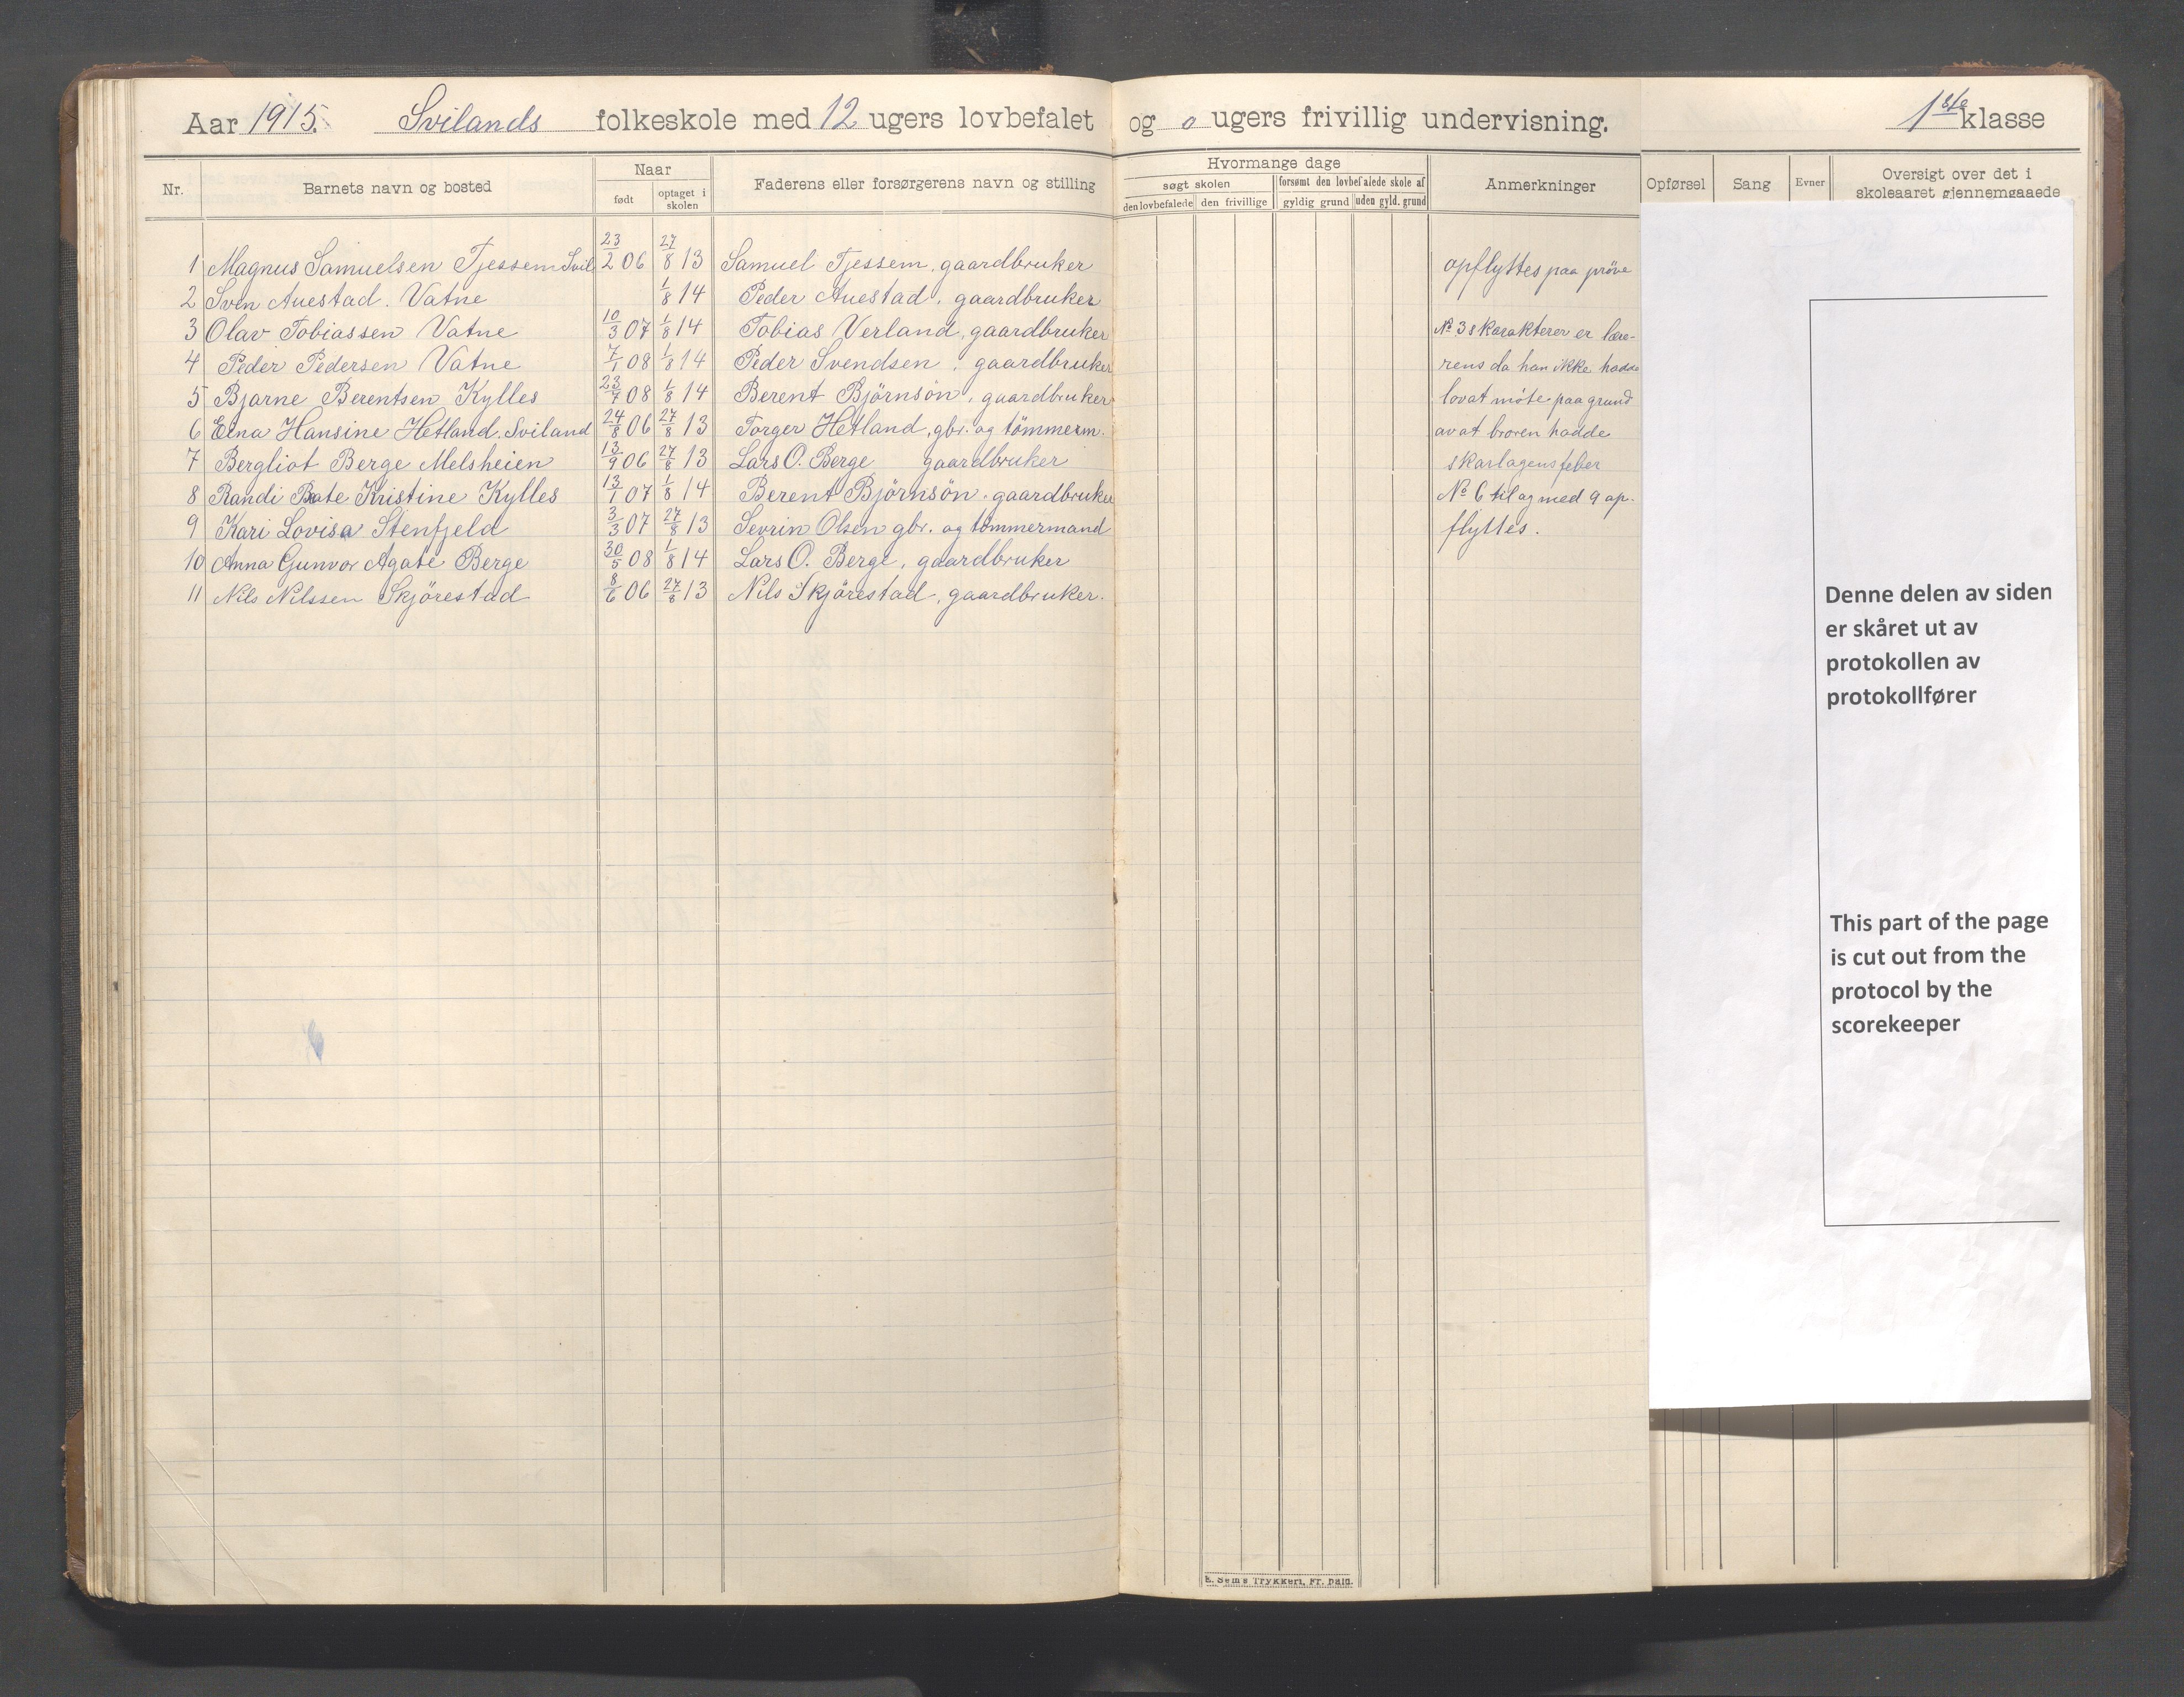 Aar 1915. Svilands folkeskole med 12 ugers lovbefalet og 0 ugers frivillig undervisning. 1ste klasse
Nr. Barnets navn og bosted Naar født optaget i skolen Faderens eller forsørgerens navn og stilling
Hvormange dage
søgt skolen forsømt den lovbefalede skole af
den lovbefalede den frivillige gyldig grund uden gyld. grund
Anmerkninger Opførsel Sang Evner Oversigt over det i
skoleaaret gjennemgaaede
1 Magnus Samuelsen Tjessem Svil 23/2 06 27/8 13 Samuel Tjessem, gaardbruker opflyttes paa pröve
2 Sven Auestad. Vatne 1/8 14 Peder Auestad, gaardbruker
3 Olav Tobiassen Vatne 10/3 07 1/8 14 Tobias Verland, gaardbruker No 3s karakterer er lære-
4 Peder Pedersen Vatne 7/1 08 1/8 14 Peder Svendsen, gaardbruker rens da han ikke hadde
5 Bjarne Berentsen Kylles 23/7 08 1/8 14 Berent Björnsön, gaardbruker lov at möte paa grund
6 Elna Hansine Hetland. Sviland 24/8 06 27/8 13 Torger Hetland, gbr. og tömmerm. av at broren hadde
7 Bergliot Berge Melsheien 13/9 06 27/8 13 Lars O. Berge gaardbruker skarlagensfeber
8 Randi Beate Kristine Kylles 13/1 07 1/8 14 Berent Björnsön, gaardbruker No 6 til og med 9 op-
9 Kari Lovisa Stenfjeld 3/3 07 27/8 13 Sevrin Olsen gbr. og tömmermand flyttes.
10 Anna Gunvor Agate Berge 30/5 08 1/8 14 Lars O. Berge, gaardbruker
11 Nils Nilssen Skjörestad 8/6 06 27/8 13 Nils Skjörestad, gaardbruker.
Denne delen av siden
er skåret ut av
protokollen av
protokollfører
This part of the page
is cut out from the
protocol by the
scorekeeper
E. Sem's Trykkeri, Fr.hald.